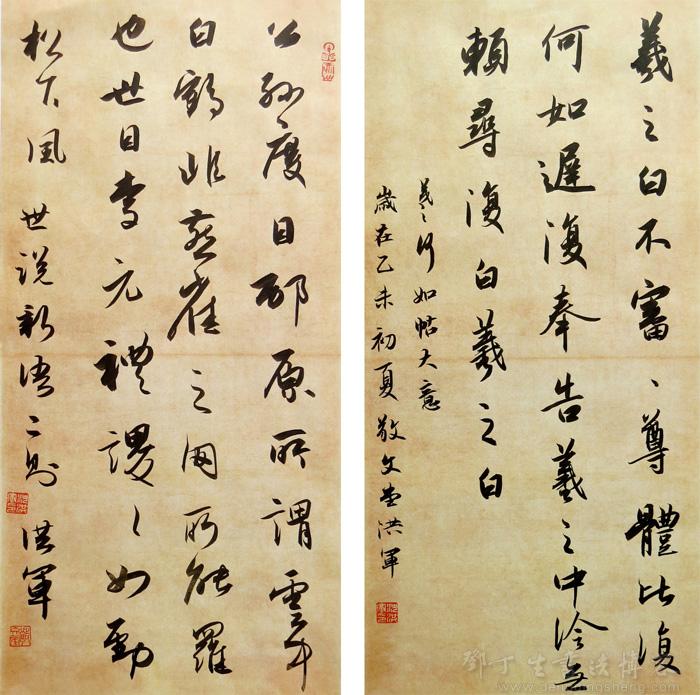 羲之白不審、尊體比復
何如遲復奉告羲之中冷無
賴尋復白羲之白
羲之何如帖大意
歲在乙未初夏敬文堂洪軍
公孫度目邴原所謂雲中
白鶴非燕雀之網所能羅
也世目李元禮謖〻如勁
松下風 世說新語二則 洪軍
鄧丁生書法博客
www.dengdingsheng.com